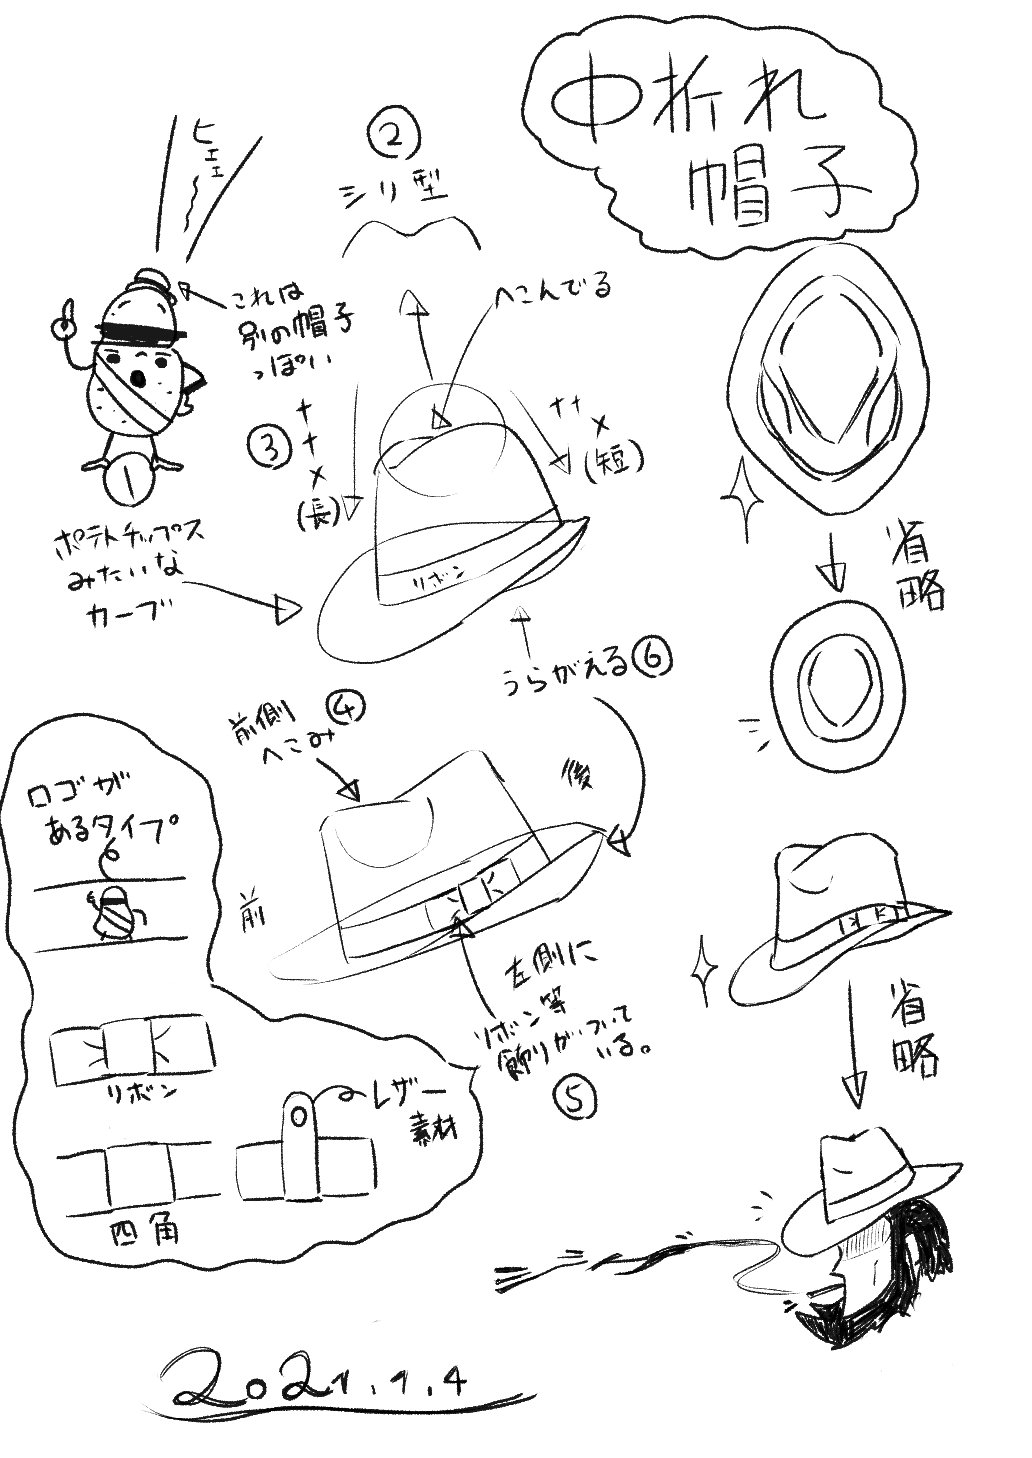 中折れ
帽子
ヒェェ
②
シリ型
へこんでる
これは
別の帽子
っぽい
③
(長)
(短)
①
ポテトチップス
みたいな
カーブ
リボン
うらがえる⑥
省略
前側④
へこみ
後
前
左側に
リボン等
飾りがついて
いる。
⑤
ロゴが
あるタイプ
リボン
レザー
素材
四角
省略
2021.1.4